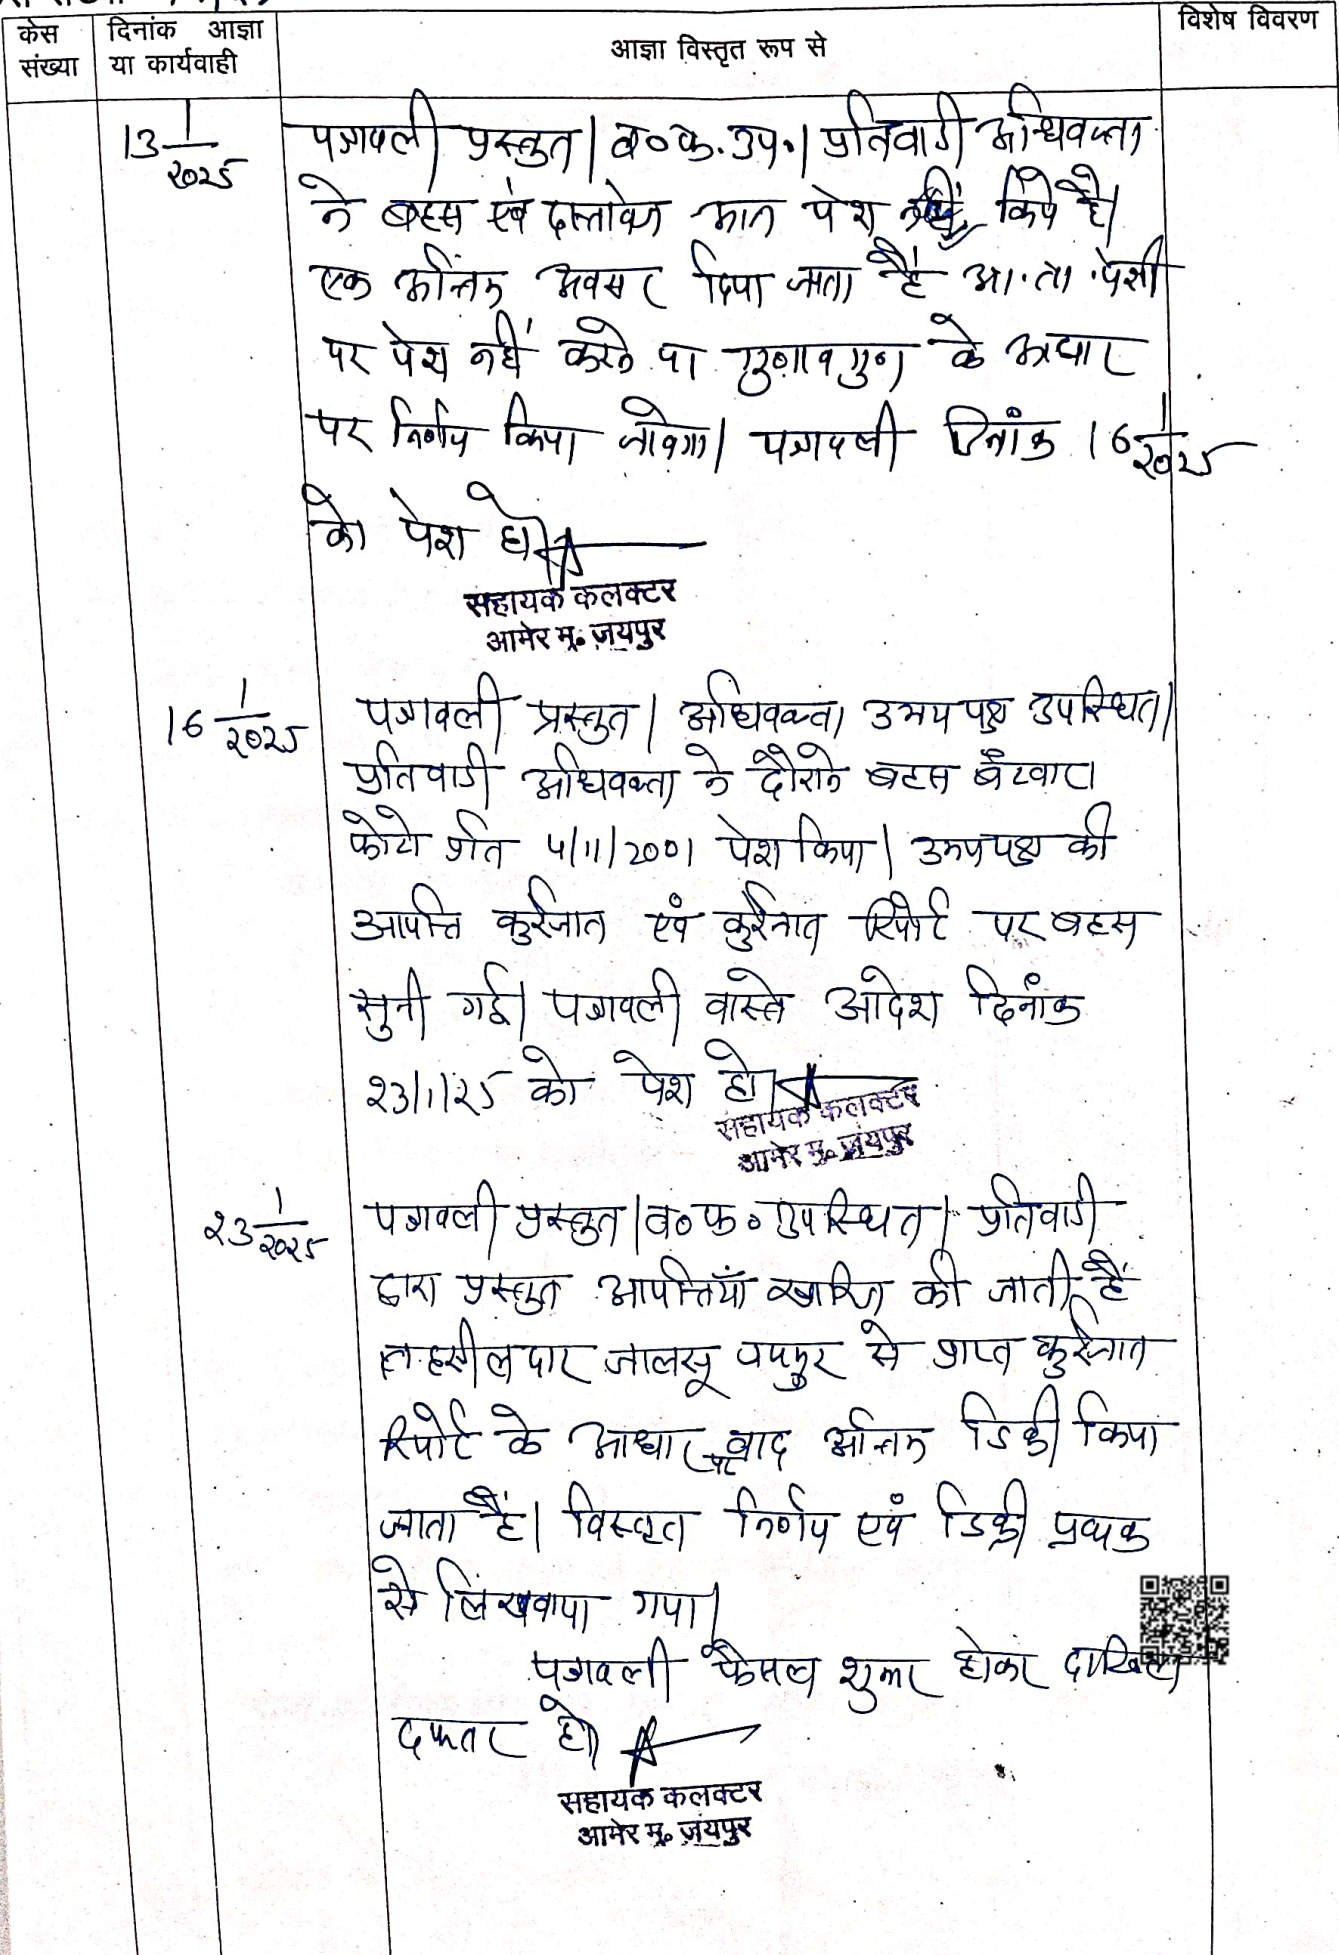 केस संख्या
दिनांक आज्ञा या कार्यवाही
आज्ञा विस्तृत रूप से
विशेष विवरण
13 1/2025
पत्रावली प्रस्तुत। व०फ.उप.। प्रतिवादी अधिवक्ता
ने बहस एवं दस्तावेज आज पेश नहीं किये है।
एक अन्तिम अवसर दिया जाता है आ.ता.पेशी
पर पेश नहीं करने पर गुणावगुण के आधार
पर निर्णय किया जावेगा। पत्रावली दिनांक 16 1/2025
को पेश हो।
सहायक कलक्टर
आमेर मु० जयपुर
16 1/2025
पत्रावली प्रस्तुत। अधिवक्ता उभयपक्ष उपस्थित।
प्रतिवादी अधिवक्ता ने दौराने बहस बँटवारा
फोटो प्रति 5/11/2001 पेश किया। उभयपक्ष की
आपत्ति कुर्रेजात एवं कुर्रेजात रिपोर्ट पर बहस
सुनी गई। पत्रावली वास्ते आदेश दिनांक
23/1/25 को पेश हो।
सहायक कलक्टर
आमेर मु० जयपुर
23 1/2025
पत्रावली प्रस्तुत। व०फ० उपस्थित। प्रतिवादी
द्वारा प्रस्तुत आपत्तियाँ खारिज की जाती है
तहसीलदार जालसू जयपुर से प्राप्त कुर्रेजात
रिपोर्ट के आधार पर वाद अन्तिम डिक्री किया
जाता है। विस्तृत निर्णय एवं डिक्री पृथक
से लिखवाया गया।
पत्रावली फैसल शुमार होकर दाखिल
दफ्तर हो।
सहायक कलक्टर
आमेर मु० जयपुर